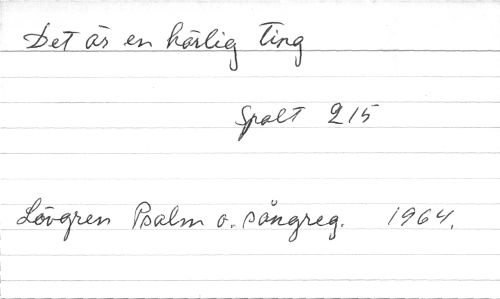 Det är en härlig Ting
Spalt 215
Lövgren Psalm o. sångreg. 1964.